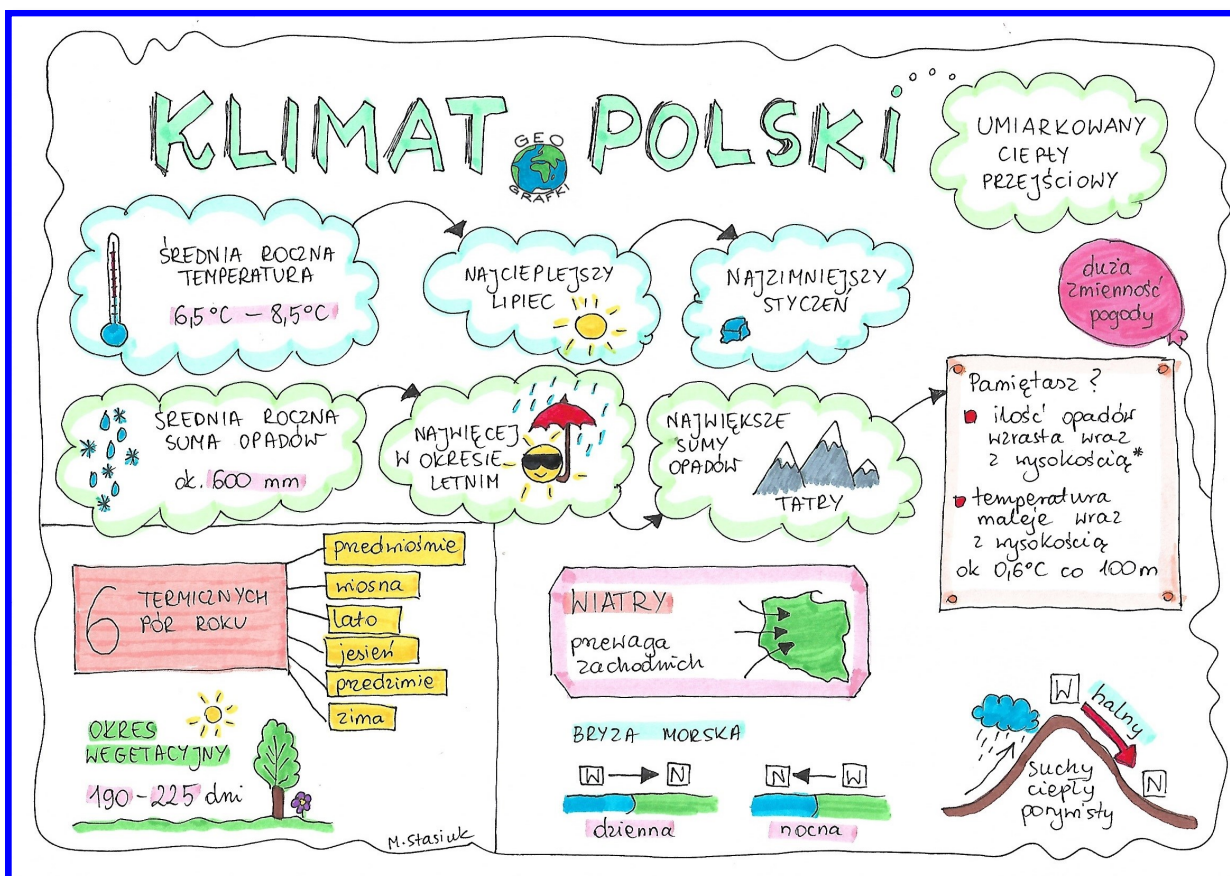 KLIMAT POLSKI
GEO
GRAFKI
UMIARKOWANY
CIEPŁY
PRZEJŚCIOWY
ŚREDNIA ROCZNA
TEMPERATURA
6,5°C – 8,5°C
NAJCIEPLEJSZY
LIPIEC
NAJZIMNIEJSZY
STYCZEŃ
duża
zmienność
pogody
ŚREDNIA ROCZNA
SUMA OPADÓW
ok. 600 mm
NAJWIĘCEJ
W OKRESIE
LETNIM
NAJWIĘKSZE
SUMY
OPADÓW
TATRY
Pamiętasz ?
ilość opadów
wzrasta wraz
z wysokością*
temperatura
maleje wraz
z wysokością
ok 0,6°C co 100m
6 TERMICZNYCH
PÓR ROKU
przedwiośnie
wiosna
lato
jesień
przedzimie
zima
OKRES
WEGETACYJNY
190 – 225 dni
M.Stasiuk
WIATRY
przewaga
zachodnich
BRYZA MORSKA
W N
dzienna
N W
nocna
W
halny
N
suchy
ciepły
porywisty